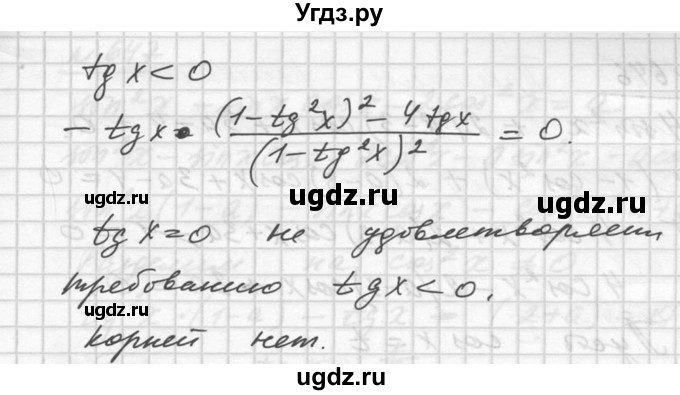 Угдз.рф
tg x < 0
- tg x • ((1 - tg²x)² - 4 tg x) / (1 - tg²x)² = 0.
ugdz.ru ugdz.ru ugdz.ru
tg x = 0 не удовлетворяет
требованию tg x < 0.
ugdz.ru ugdz.ru
корней нет.
ugdz.ru